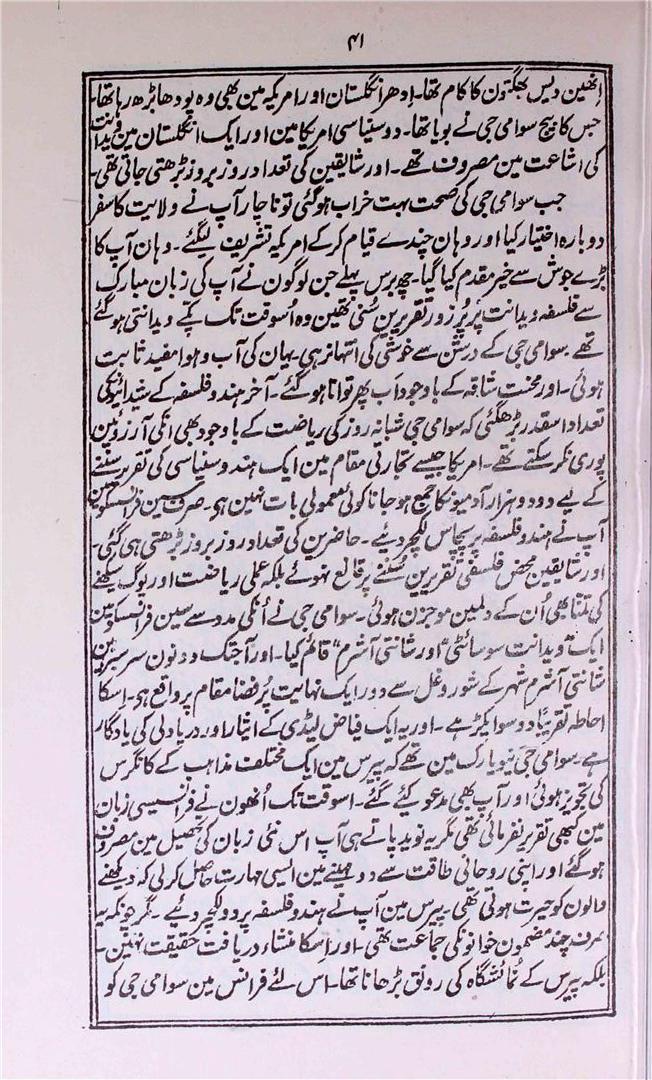 ۴۱
اِنھین دیس بھگتون کا کام تھا۔ اِدھر انگلستان اور امریکہ مین بھی وہ پودھا بڑھ رہا تھا۔
جس کا بیج سوامی جی نے بویا تھا۔ دو سنیاسی امریکا مین اور ایک انگلستان مین ویدانت
کی اشاعت مین مصروف تھے۔ اور شایقین کی تعداد روز بروز بڑھتی جاتی تھی۔
جب سوامی جی کی صحت بہت خراب ہوگئی تو ناچار آپ نے ولایت کا سفر
دوبارہ اختیار کیا اور وہان چندے قیام کرکے امریکہ تشریف لیگئے۔ وہان آپ کا
بڑے جوش سے خیر مقدم کیا گیا۔ چھ برس پہلے جن لوگون نے آپ کی زبان مبارک
سے فلسفہ ویدانت پر پُرزور تقریرین سُنی تھین وہ اُسوقت تک پکے ویدانتی ہوگئے
تھے۔ سوامی جی کے درشن سے خوشی کی انتہا نہ رہی۔ یہان کی آب و ہوا مفید ثابت
ہوئی۔ اور محنت شاقہ کے باوجود آپ پھر توانا ہوگئے۔ آخر ہندو فلسفہ کے شیدائیونکی
تعداد اسقدر بڑھگئی کہ سوامی جی شبانہ روز کی ریاضت کے باوجود بھی انکی آرزوئین
پوری نکرسکتے تھے۔ امریکا جیسے تجارتی مقام مین ایک ہندو سنیاسی کی تقریر سُننے
کے لیے دو دو ہزار آدمیونکا جمع ہوجانا کوئی معمولی بات نہین ہی۔ صرف سین فرانسسکو مین
آپ نے ہندو فلسفہ پر پچاس لکچر دیئے۔ حاضرین کی تعداد روز بروز بڑھتی ہی گئی۔
اور شایقین محض فلسفی تقریرین سُننے پر قانع نہوئے بلکہ عملی ریاضت اور یوگ سیکھنے
کی تمنا بھی اُن کے دلمین موجزن ہوئی۔ سوامی جی نے اُنکی مدد سے سین فرانسسکو مین
ایک "ویدانت سوسائٹی" اور "شانتی آشرم" قائم کیا۔ اور آجتک دونون سرسبز ہین
شانتی آشرم شہر کے شور و غل سے دور ایک نہایت پُر فضا مقام پر واقع ہی۔ اِسکا
احاطہ تقریباً دو سو ایکڑ ہے۔ اور یہ ایک فیاض لیڈی کے ایثار اور دریا دلی کی یادگار
ہے۔ سوامی جی نیویارک مین تھے کہ پیرس مین ایک مختلف مذاہب کے کانگرس
کی تجویز ہوئی اور آپ بھی مدعو کیئے گئے۔ اسوقت تک اُنھون نے فرانسیسی زبان
مین کبھی تقریر نفرمائی تھی مگر یہ نوید پاتے ہی آپ اس نئی زبان کی تحصیل مین مصروف
ہوگئے اور اپنی روحانی طاقت سے دو مہینے مین ایسی مہارت حاصل کرلی کہ دیکھنے
والون کو حیرت ہوتی تھی۔ پیرس مین آپ نے ہندو فلسفہ پر دو لکچر دیئے۔ مگر چونکہ یہ
صرف چند مضمون خوانونکی جماعت تھی۔ اور اِسکا منشاء دریافت حقیقت نہین۔
بلکہ پیرس کے نمائشگاہ کی رونق بڑھانا تھا۔ اس لئے فرانس مین سوامی جی کو